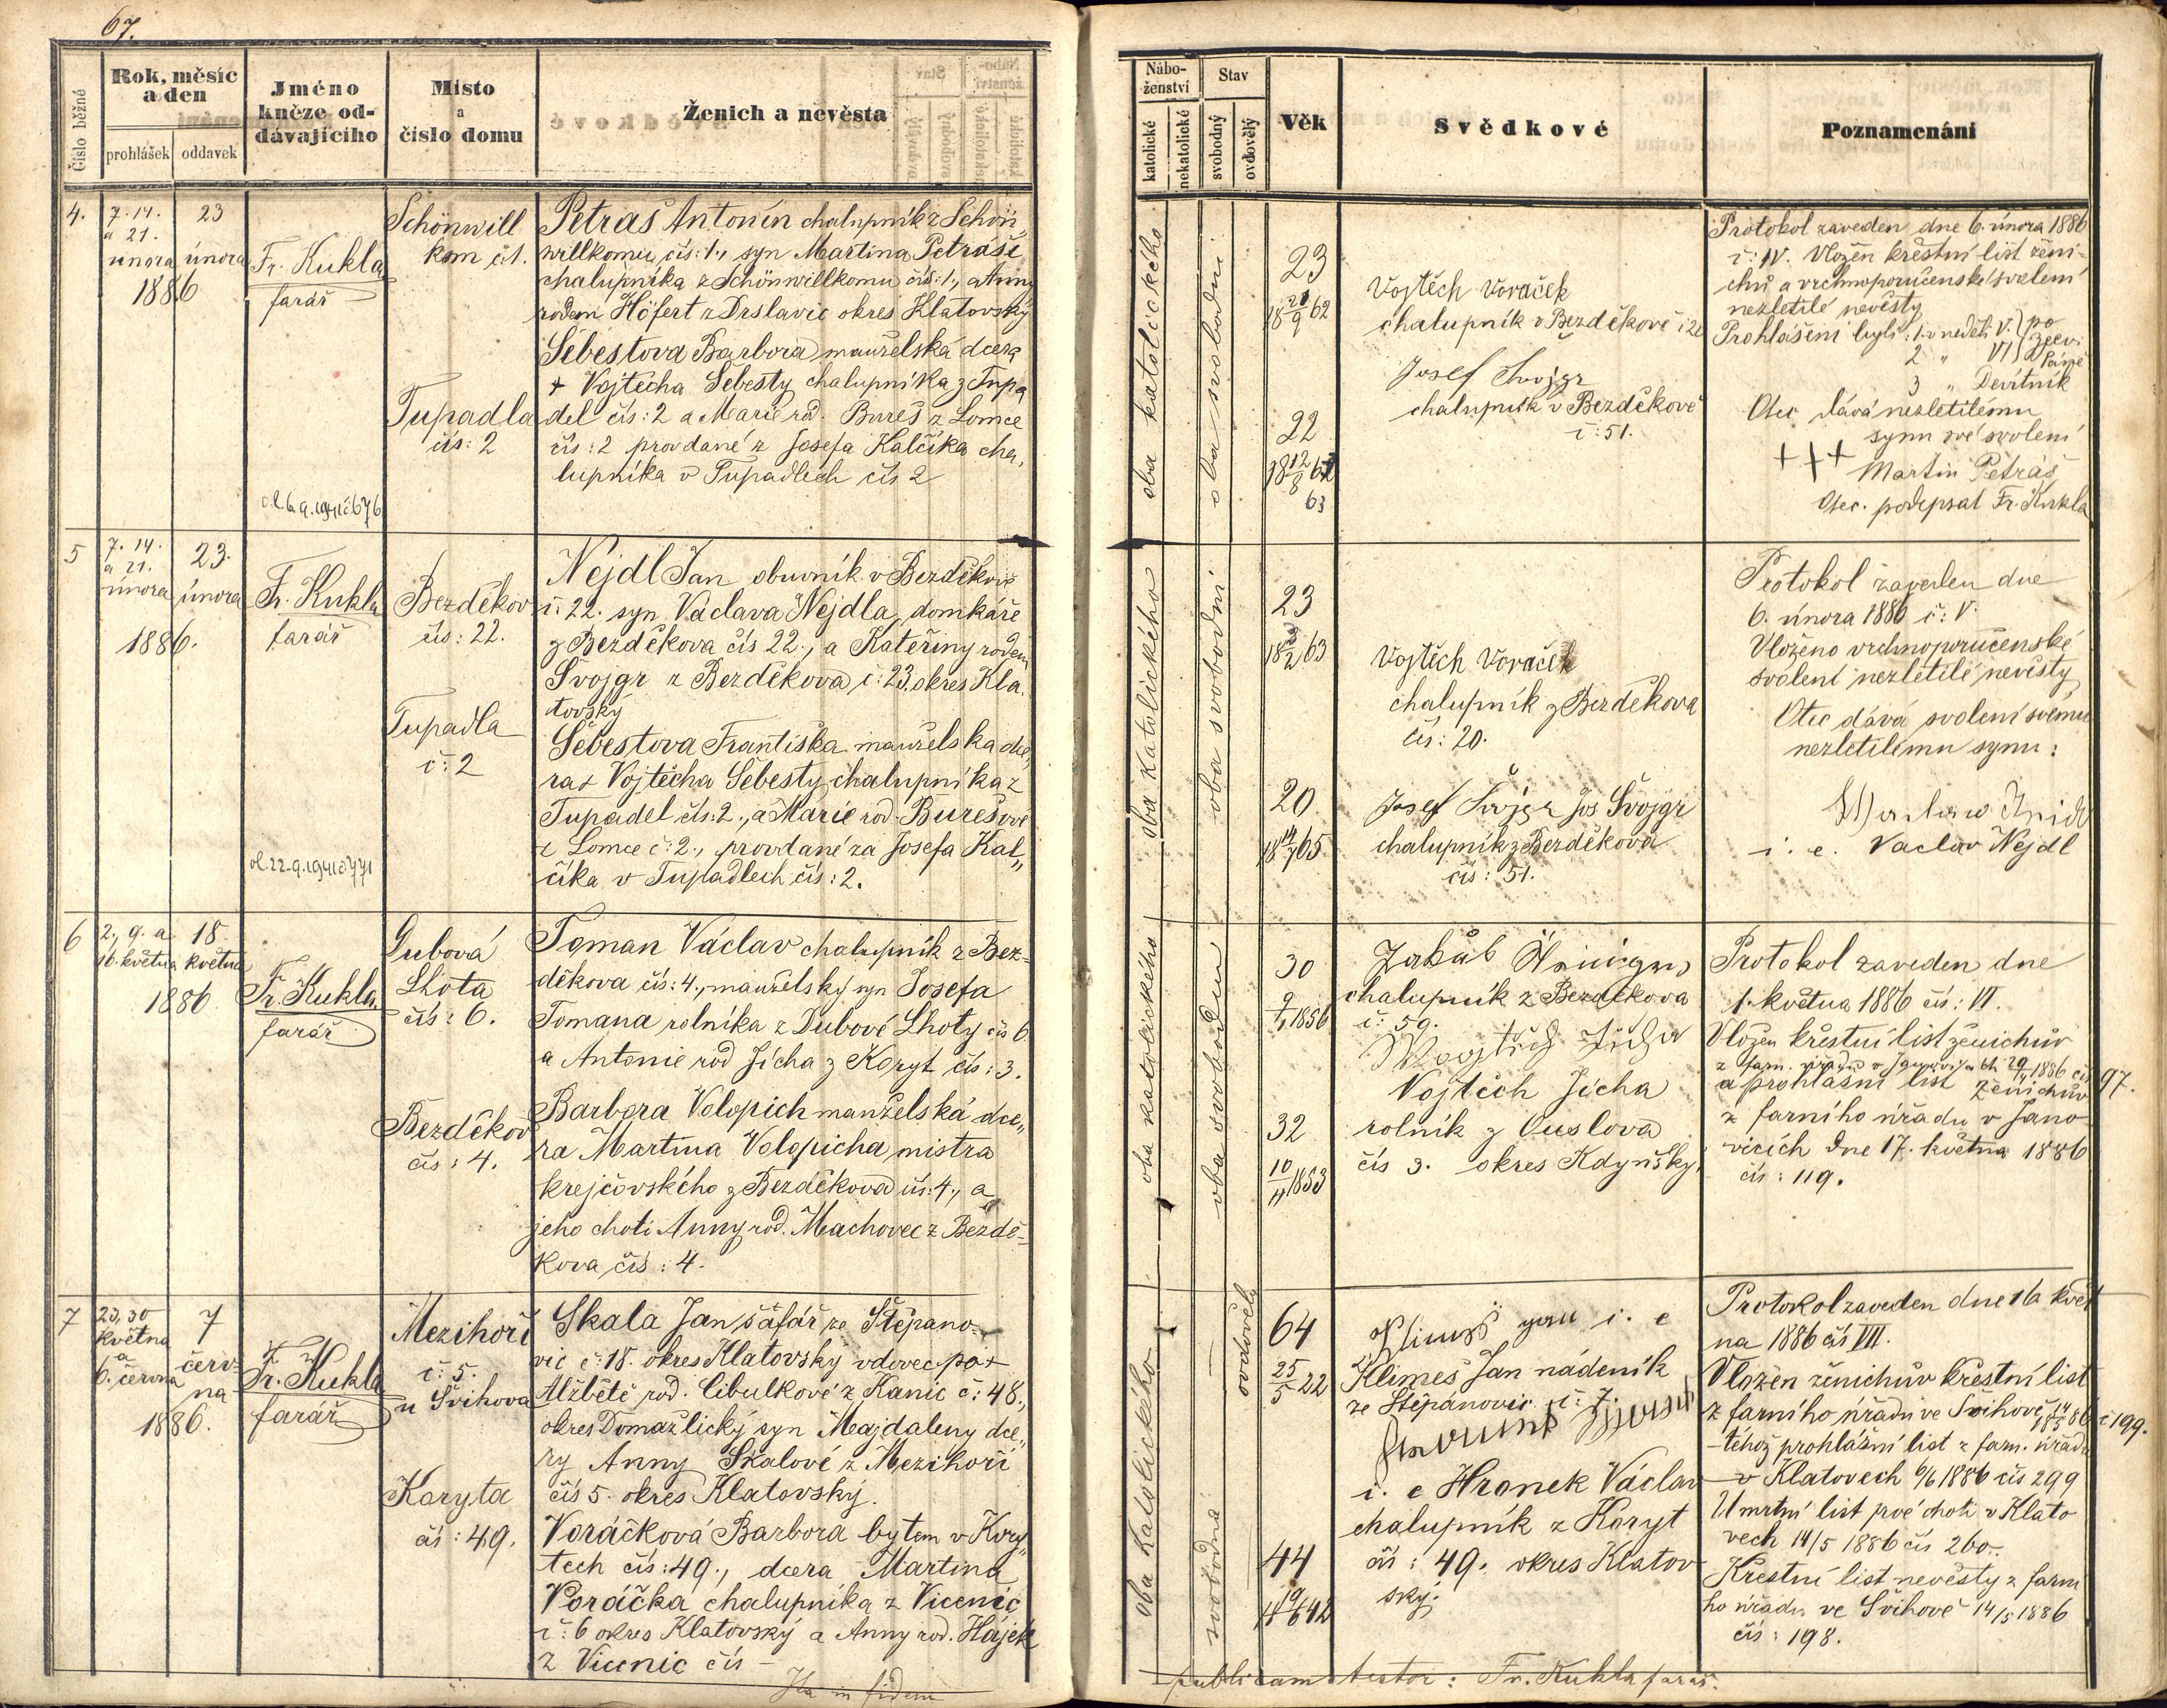 67.
Číslo běžné
Rok, měsíc a den
prohlášek
oddavek
Jméno kněze oddávajícího
Místo a číslo domu
Ženich a nevěsta
Náboženství
katolické
nekatolické
Stav
svobodný
ovdovělý
Věk
Svědkové
Poznamenání
4.
7. 14.
a 21.
února
1886
23
února
Fr. Kukla
farář
Schönwill
kom č. 1.
Tupadla
čís: 2
Petraš Antonín chalupník z Schön„
willkomu čís: 1., syn Martina Petráše
chalupníka z Schönwillkomu čís: 1., a Anny
rodem Höfert z Drslavic okres Klatovský
Šebestova Barbora manželská dcera
+ Vojtěcha Šebesty chalupníka z Tupa
del čís: 2 a Marie rod. Bureš z Lomce
čís: 2 provdané z Josefa Kalčíka cha„
lupníka v Tupadlech čís 2
oba katolického
oba svobodni
23
18 9 62
22
18 12/8 62
63
Vojtěch Voráček
chalupník v Bezděkově č 20
Josef Švojgr
chalupník v Bezděkově
č: 51.
Protokol zaveden dne 6. února 1886
č: IV. Vložen křestní list ženi=
chů a vrchnoporučenské svolení
nezletilé nevěsty
Prohlášení byli: 1. v neděli V. po
2 „ VI zjev. Páně
3 „ Devítník
Otec dává nezletilému
synu své svolení
+++ Martin Petráš
Otec. podepsal Fr. Kukla
5
7. 14.
a 21.
února
1886.
23.
února
Fr. Kukla
farář
Bezděkov
čís: 22.
Tupadla
č: 2
Nejdl Jan obuvník v Bezděkově
č: 22. syn Václava Nejdla, domkáře
z Bezděkova čís 22., a Kateřiny rodem
Švojgr z Bezděkova č: 23. okres Kla
tovský
Šebestova Františka manželska dce„
ra + Vojtěcha Šebesty chalupníka z
Tupadel čís: 2., a Marie rod. Burešové
z Lomce č: 2., provdané za Josefa Kal„
číka v Tupadlech čís: 2.
oba katolického
oba svobodní
23
18 2 63
20
18 65
Vojtěch Voráček
chalupník z Bezděkova
čís: 20.
Josef Švojgr Jos Švojgr
chalupník z Bezděkova
čís: 51.
Protokol zaveden dne
6. února 1886 č: V.
Vloženo vrchnoporučenské
svolení nezletilé nevěsty
Otec dává svolení svému
nezletilému synu:
i. e. Vaclav Nejdl
6
2., 9. a
16. května
1886
18
května
Fr. Kukla
farář
Dubová
Lhota
čís: 6.
Bezděkov
čís: 4.
Toman Václav chalupník z Bez=
děkova čís: 4., manželský syn Josefa
Tomana rolníka z Dubové Lhoty čís 6
a Antonie rod Jícha z Koryt čís: 3.
Barbora Volopich manželská dce„
ra Martina Volopicha mistra
krejčovského z Bezděkova čís: 4., a
jeho choti Anny rod. Machovec z Bezdě=
kova čís: 4.
oba katolického
oba svobodni
30
1856
32
10/4 1853
Jakub
chalupník z Bezděkova
č: 59.
Vojtěch Jícha
rolník z Ouslova
čís 3. okres Kdyňský.
Protokol zaveden dne
1. května 1886 čís: VI.
Vložen křestní list ženichův
z farn. úřadu v 1886 čís 97.
a prohlášní list ženichův
z farního úřadu v Jano
vicích dne 17. května 1886
čís: 119.
7
23, 30
května
a
6. června
1886.
7
červ
na
Fr. Kukla
farář
Mezihoří
č: 5.
u Švihova
Koryta
čís: 49.
Skala Jan šafář ze Štěpano=
vic č: 18. okres Klatovský vdovec po +
Alžbětě rod. Cibulkové z Kanic č: 48.,
okres Domažlický syn Magdaleny dce„
ry Anny Skalové z Mezihoří
čís 5. okres Klatovský.
Voráčková Barbora bytem v Kory„
tech čís: 49., dcera Martina
Voráčka chalupníka z Vicenic
č: 6 okres Klatovský a Anny rod. Hájek
z Vicenic čís —
oba katolického
ovdovělý
svobodná
64
25/5 22
44
42
i. e
Klimeš Jan nádeník
ze Štěpanovic č: 7.
i. e Hranek Václav
chalupník z Koryt
čís: 49. okres Klatov
ský.
Protokol zaveden dne 16 květ
na 1886 čís VII.
Vložen ženichův křestní list
z farního úřadu ve Švihově 18 14/5 86 č 199.
téhož prohlášní list z farn. úřadu
v Klatovech 6/6 1886 čís 299
Umrtní list prvé choti v Klato
vech 14/5 1886 čís 260.
Křestní list nevěsty z farní
ho úřadu ve Švihově 14/5 1886
čís: 198.
Ita in fidem
publicam testor: Fr. Kukla farář.